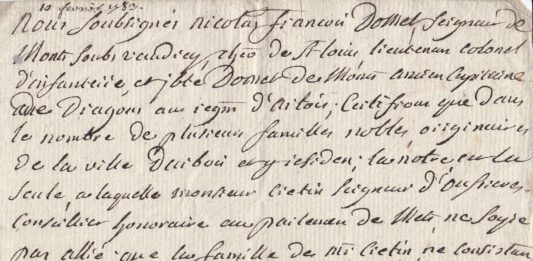 10 fevrier 1782
Nous soubsignés nicolas francois Domet seigneur de
Mont soubs vaudrey, chev de St louis lieutenan colonel
d'infanterie, et jbte Domet de Mont ancien Capitaine
de Dragons au regm d'artois; Certifions que dans
le nombre de plusieur familles nobles originaires
de la ville d'arbois et y residen; la notre est la
seule a laquelle monsieur cretin seigneur d'oussieres
Conseiller honoraire au parlemen de Metz ne soye
par allié; que la famille des mr cretin ne consistan